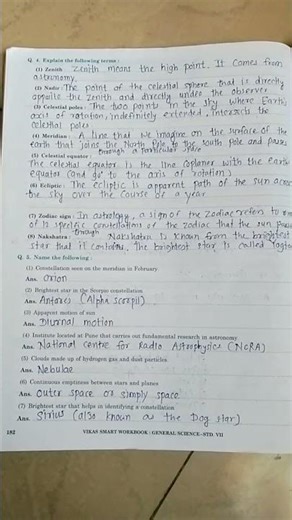 Q. 4. Explain the following terms :
(1) Zenith - Zenith means the high point. It comes from
astronomy.
(2) Nadir - The point of the celestial sphere that is directly
opposite the zenith and directly under the observer
(3) Celestial poles - The two points in the sky where Earth
axis of rotation, indefinitely extended, intersects the
celestial poles
(4) Meridian - A line that we imagine on the surface of the
earth that joins the North pole to the south pole and passes
through a particular place
(5) Celestial equator :
The celestial equator is the line coplaner with the earth
equator (and 90° to the axis of rotation)
(6) Ecliptic - The ecliptic is apparent path of the sun across
the sky over the course of a year
(7) Zodiac sign - In astrology, a sign of the zodiac refers to
of 12 specific constellations of the zodiac that the sun passes
through
(8) Nakshatra - Nakshatra is known from the brightest
star that it contains, the brightest star is called
Q. 5. Name the following :
(1) Constellation seen on the meridian in February
Ans. orion
(2) Brightest star in the Scorpio constellation
Ans. Antares (Alpha scorpii)
(3) Apparent motion of sun
Ans. Diurnal motion
(4) Institute located at Pune that carries out fundamental research in astronomy
Ans. National centre for Radio Astrophysics (NCRA)
(5) Clouds made up of hydrogen gas and dust particles
Ans. Nebulae
(6) Continuous emptiness between stars and planes
Ans. Outer space or simply space
(7) Brightest star that helps in identifying a constellation
Ans. Sirius (also known as the Dog star)
182 VIKAS SMART WORKBOOK : GENERAL SCIENCE–STD. VII